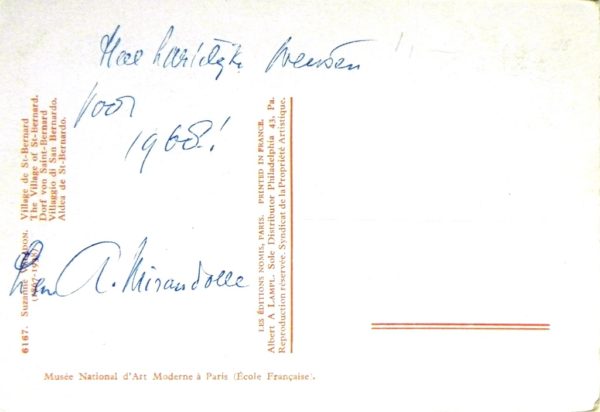 Heel hartelijke wensen
voor
1968!
A. Mirandolle
6167. Suzanne Village de St-Bernard
The Village of St-Bernard.
Dorf von Saint-Bernard
Villaggio di San Bernardo.
Aldea de St-Bernardo.
LES ÉDITIONS NOMIS, PARIS. PRINTED IN FRANCE.
Albert A LAMPL. Sole Distributor Philadelphia 43, Pa.
Reproduction réservée. Syndicat de la Propriété Artistique.
Musée National d'Art Moderne à Paris (École Française).